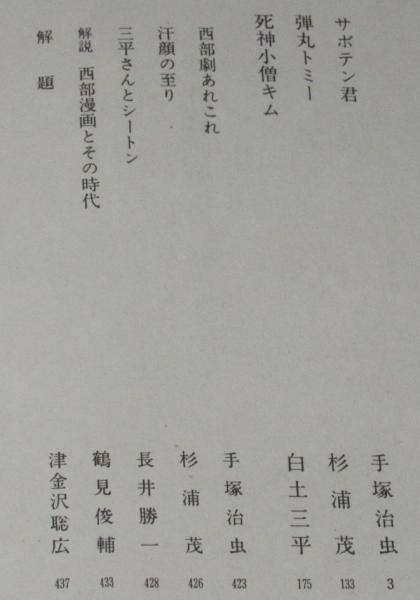 サボテン君 手塚治虫 3
弾丸トミー 杉浦茂 133
死神小僧キム 白土三平 175
西部劇あれこれ 手塚治虫 423
汗顔の至り 杉浦茂 426
三平さんとシートン 長井勝一 428
解説 西部漫画とその時代 鶴見俊輔 433
解題 津金沢聡広 437